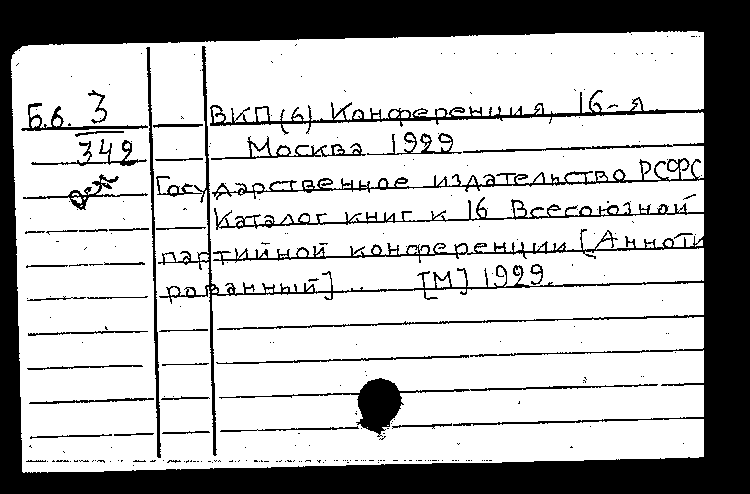 Б.б. 3
342
ВКП(б). Конференция, 16-я.
Москва 1929
Государственное издательство РСФС
Каталог книг к 16 Всесоюзной
партийной конференции [Анноти
рованный] .. [М] 1929.